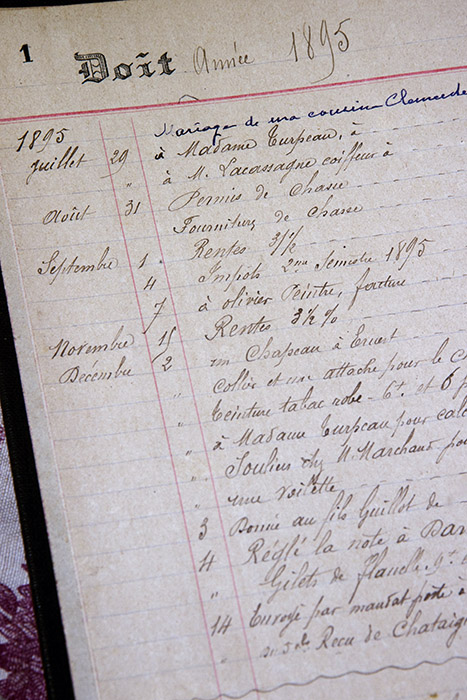 1
Doit Année 1895
Mariage de ma cousine
1895
Juillet 29 à Madame Turpeau, à
" à M. Lacassagne coiffeur à
Août 31 Permis de Chasse
Fournitures de chasse
Septembre 1 Rentes 3½
4 Impots 2me Semestre 1895
7 à olivier Peintre, facture
Novembre 15 Rentes 3½ %
Decembre 2 un Chapeau à Ernest
" collier et une attache pour le
" Teinture tabac robe - 6t. et 6
" à Madame Turpeau pour
" Souliers chez M. Marchand
" une Voilette
3 Donné au fils Guillot de
4 Réglé la note à
" Gilets de flanelle 9t.
14 Envoyé par mandat poste à
" Reçu de